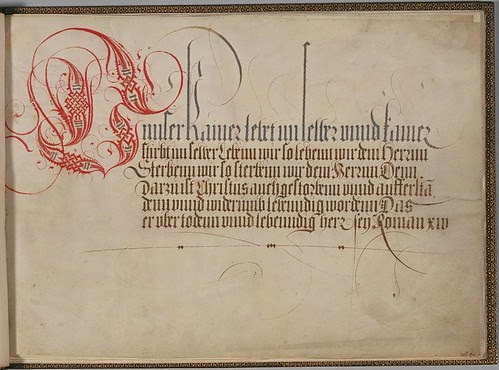 Vnnser Kainer lebt im selber vnnd kainer
stirbt im selber Lebenn wir so lebenn wir dem Herrnn
Sterbenn wir so sterbenn wir dem Herrnn Denn
Darzu ist Christus auch gestorbenn vnnd aufferstā
denn vnnd widerumb lebenndig wordenn Das
er vber todenn vnnd lebenndig herr sey Roman xiv